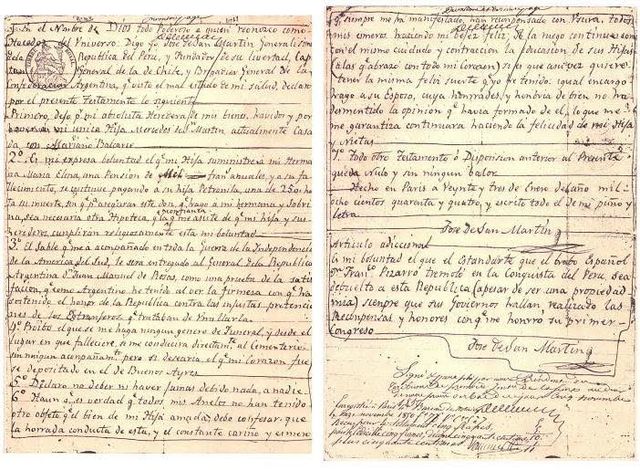 En el Nombre de Dios todo Poderoso a quien reconozco como
Hacedor del Vniverso: Digo yo Jose de San Martin, Generalisimo
de la Republica del Perú, y Fundador de su livertad, Cap.tan
General de la de Chile, y Brigadier General de la
Confederacion Argentina, q.e visto el mal estado de mi salud, declaro
por el presente Testamento lo siguiente
Primero, dejo p.r mi absoluta Heredera de mis bienes, havidos y por
haver a mi unica Hija Mercedes de San Martin actualmente casa
da con Mariano Balcarce
2º Es mi expresa boluntad el q.e mi Hija suministre a mi Herma
na Maria Elena, una Pension de Mil fran.s anuales, y a su fa
llecimiento, se continue pagando a su hija Petronila, una de 250 h.ta
su muerte, sin q.e p.a asegurar este don q.e hago a mi hermana y Sobri
na, sea necesaria otra Hipoteca q.e la confianza q.e me asiste de q.e mi hija y sus
herederos, cumpliran religiosamente esta mi boluntad
3º El Sable q.e me ha acompañado en toda la Guerra de la Independencia
de la America del Sud, le sera entregado al General de la Republica
Argentina D.n Juan Manuel de Rosas, como una prueba de la satis
facion, q.e como Argentino he tenido al ver la firmeza con q.e ha
sostenido el honor de la Republica contra las injustas pretencio
nes de los Estranjeros q.e trataban de Umillarla
4º Proibo el que se me haga ningun genero de Funeral, y desde el
lugar en que falleciere, se me conducira directam.te al Cementerio
sin ningun acompañam.to pero si desearia el q.e mi Corazon fue
se depositado en el de Buenos Ayres
5º Declaro no deber ni haver jamas debido nada, a nadie
6º Haun q.e es verdad q.e todos mis Anelos no han tenido
otro objeto q.e el bien de mi Hija amada, debo confesar que
la honrada conducta de esta, y el constante cariño y esmero
q.e siempre me ha manifestado, han recompensado con Usura, todos
mis esmeros haciendo mi bejez feliz. Yo la ruego continue con
el mismo cuidado y contraccion la educacion de sus Hijas
(a las q.e abrazo con todo mi Corazon) si es que a su vez quiere
tener la misma feliz suerte q.e yo he tenido; igual encargo
hago a su Esposo, cuya honrradez, y hombria de bien no ha
desmentido la opinion q.e havia formado de el, lo que me
garantiza continuara haciendo la felicidad de mi Hija
y Nietas
7º Todo otro Testamento ó Disposicion anterior al Presente
queda Nulo y sin ningun balor
Hecho en Paris a Veynte y tres de Enero del año mil
ocho cientos quarenta y quatro, y escrito todo el de mi puño y
letra
Jose de San Martin
Articulo adiccional
Es mi boluntad el que el Estandarte que el brabo Español
D.n Fran.co Pizarro tremoló en la Conquista del Perú, sea
debuelto a esta Republica (apesar de ser una propiedad
mia) siempre que sus Goviernos hallan realizado las
Recompensas y honores con q.e me honrró su primer
Congreso
Jose de San Martin